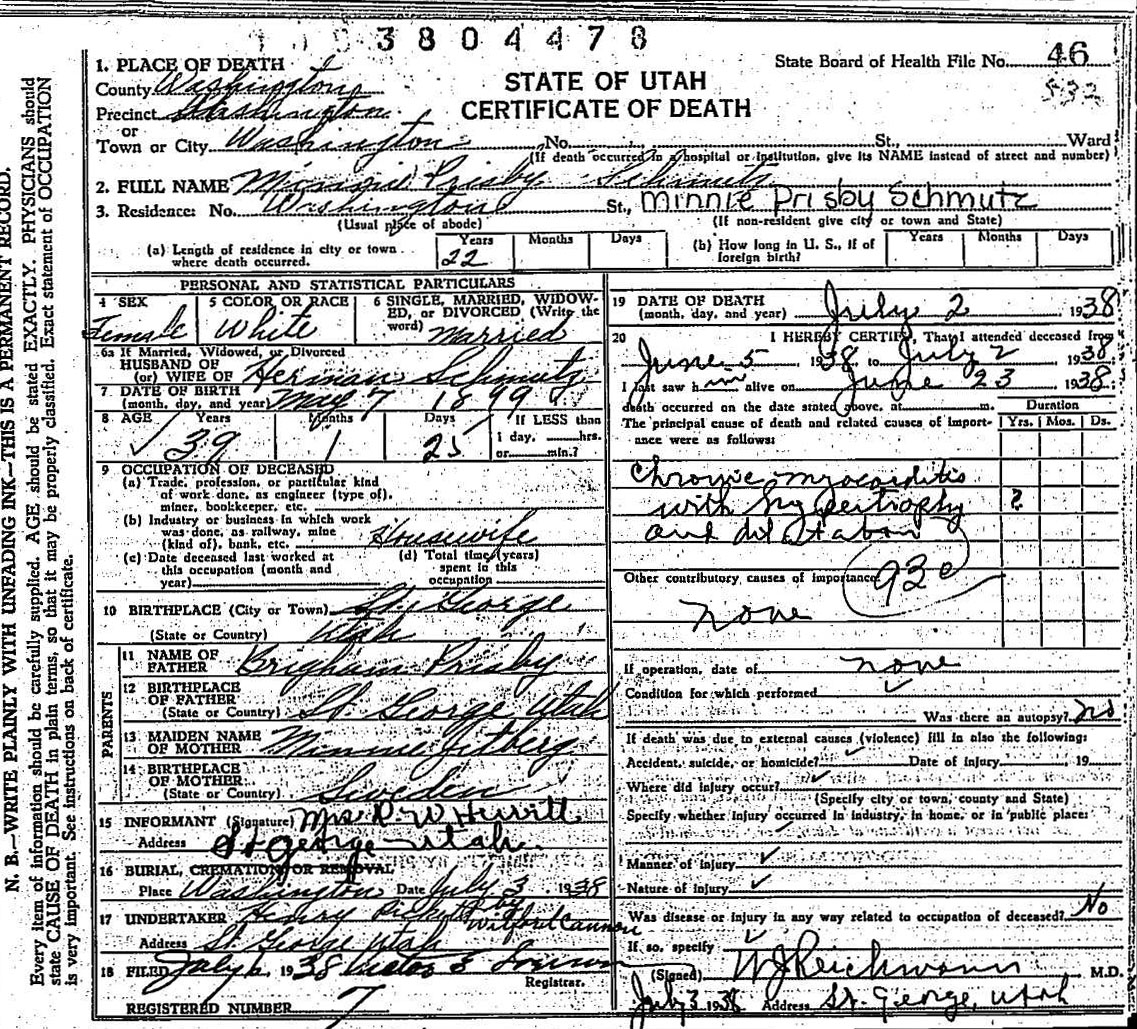 3804478
State Board of Health File No. 46
532
STATE OF UTAH
CERTIFICATE OF DEATH
1. PLACE OF DEATH
County Washington
Precinct Washington
or
Town or City Washington No. St., Ward
(If death occurred in a hospital or institution, give its NAME instead of street and number)
2. FULL NAME Minnie Prisby Schmutz
3. Residence: No. Washington St., Minnie Prisby Schmutz
(Usual place of abode) (If non-resident give city or town and State)
(a) Length of residence in city or town where death occurred. Years 22 Months Days
(b) How long in U. S., if of foreign birth? Years Months Days
PERSONAL AND STATISTICAL PARTICULARS
4 SEX Female
5 COLOR OR RACE White
6 SINGLE, MARRIED, WIDOWED, or DIVORCED (Write the word) Married
6a If Married, Widowed, or Divorced
HUSBAND OF
(or) WIFE OF Herman Schmutz
7 DATE OF BIRTH
(month, day, and year) May 7 1899
8 AGE Years 39 Months 1 Days 25 If LESS than 1 day, hrs. or min.?
9 OCCUPATION OF DECEASED
(a) Trade, profession, or particular kind
of work done, as engineer (type of),
miner, bookkeeper, etc.
(b) Industry or business in which work
was done, as railway, mine
(kind of), bank, etc. Housewife
(c) Date deceased last worked at
this occupation (month and
year)
(d) Total time (years)
spent in this
occupation
10 BIRTHPLACE (City or Town) St. George
(State or Country) Utah
PARENTS
11 NAME OF
FATHER Brigham Prisby
12 BIRTHPLACE
OF FATHER
(State or Country) St. George Utah
13 MAIDEN NAME
OF MOTHER Minnie
14 BIRTHPLACE
OF MOTHER
(State or Country) Sweden
15 INFORMANT (Signature) Mrs
Address St George Utah.
16 BURIAL, CREMATION OR REMOVAL
Place Washington Date July 3 1938
17 UNDERTAKER Henry Pickett by Wilford Cannon
Address St George Utah
18 FILED July 6, 1938
Registrar.
REGISTERED NUMBER 7
19 DATE OF DEATH
(month, day, and year) July 2, 1938
20 I HEREBY CERTIFY, That I attended deceased from
June 5 1938 to July 2 1938
I last saw h alive on June 23 1938
death occurred on the date stated above, at m.
Duration
Yrs. Mos. Ds.
The principal cause of death and related causes of importance were as follows:
Chronic myocarditis
with hypertrophy ?
and dilatation
Other contributory causes of importance 93c
none
If operation, date of none
Condition for which performed
Was there an autopsy? no
If death was due to external causes (violence) fill in also the following:
Accident, suicide, or homicide? Date of injury 19
Where did injury occur?
(Specify city or town, county and State)
Specify whether injury occurred in industry, in home, or in public place:
Manner of injury
Nature of injury
Was disease or injury in any way related to occupation of deceased? No
If so, specify
(Signed) W J Reichmann M.D.
July 3 1938 Address St. George, Utah
N. B.—WRITE PLAINLY WITH UNFADING INK—THIS IS A PERMANENT RECORD.
Every item of information should be carefully supplied. AGE should be stated EXACTLY. PHYSICIANS should
state CAUSE OF DEATH in plain terms, so that it may be properly classified. Exact statement of OCCUPATION
is very important. See instructions on back of certificate.